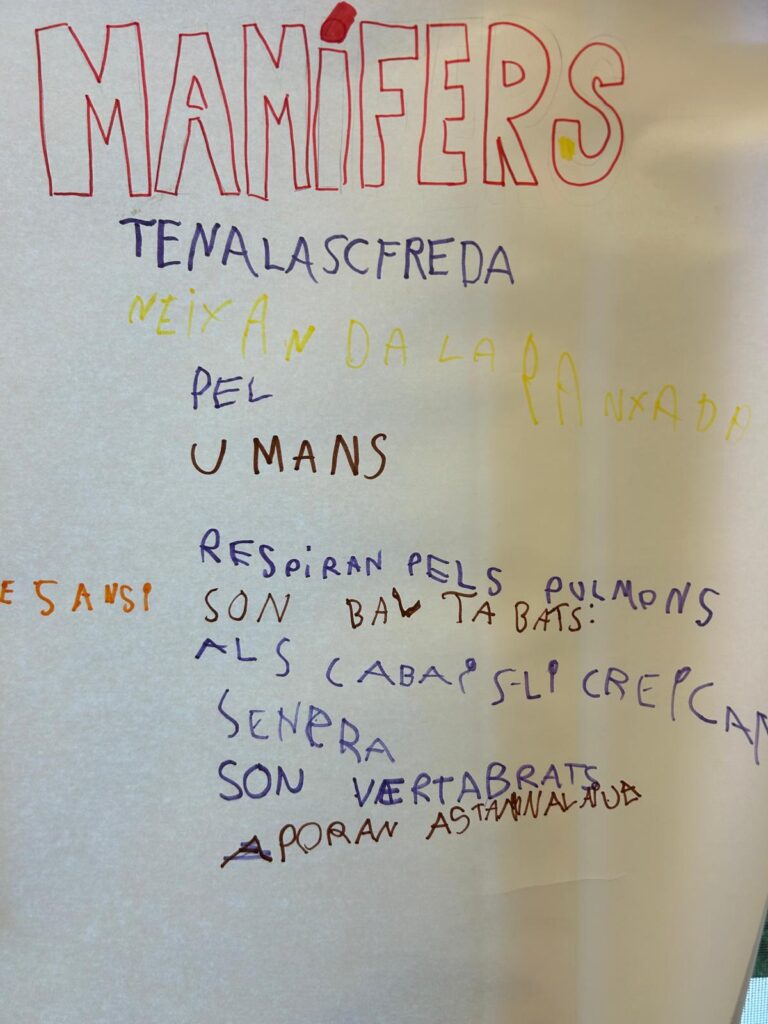 MAMÍFERS
TENALASCFREDA
NEIXAN DA LA PANXADA
PEL
UMANS
RESPIRAN PELS PULMONS
E 5 ANSI SON BAL TA BATS:
ALS CABAIS-LI CREICAN
SENPRA
SON VERTABRATS
APORAN